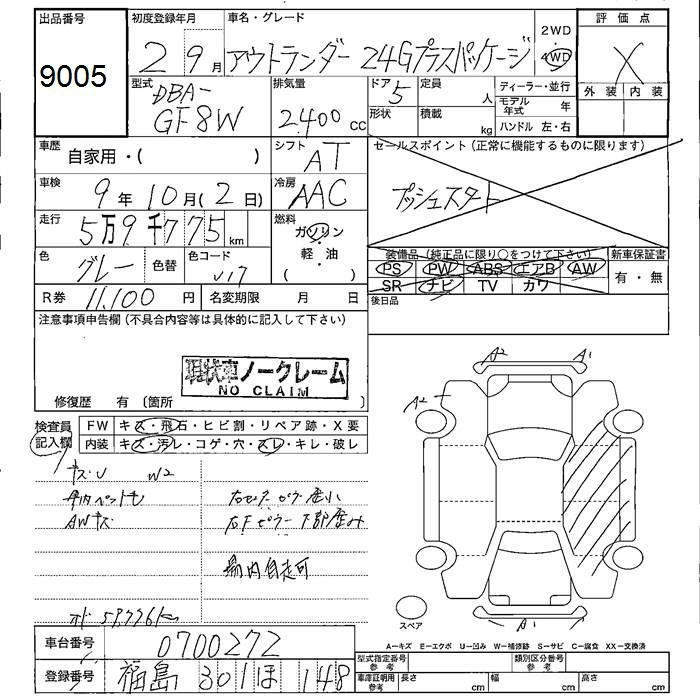 出品番号 初度登録年月 車名・グレード 2WD 評価点
9005 2 9月 アウトランダー 24Gプラスパッケージ 4WD X
型式 DBA- 排気量 ドア 5 定員 人 ディーラー・並行 外装 内装
GF8W 2400 cc 形状 積載 kg モデル年式 年
ハンドル 左・右
車歴 自家用・( ) シフト AT セールスポイント (正常に機能するものに限ります)
車検 9年 10月( 2日) 冷房 AAC プッシュスタート
走行 5万9千775km 燃料 ガソリン
軽・油
( )
色 グレー 色替 色コード U17 装備品 (純正品に限り○をつけて下さい) 新車保証書
PS PW ABS エアB AW 有・無
SR ナビ TV カワ
R券 11,100 円 名変期限 月 日 後日品
注意事項申告欄 (不具合内容等は具体的に記入して下さい)
現状車ノークレーム
NO CLAIM
修復歴 有 (箇所 )
A2 A1
A2
検査員 FW キズ・飛石・ヒビ割・リペア跡・X要
記入欄 内装 キズ・汚レ・コゲ・穴・スレ・キレ・破レ
キズU W2
AWキズ
場内自走可
スペア
A1
A-キズ E-エクボ U-凹み W-補修跡 S-サビ C-腐食 XX-交換済
車台番号 0700272
型式指定番号 参考 類別区分番号 参考
登録番号 福島 301 ほ 148
車庫証明用 参考 長さ cm 幅 cm 高さ cm